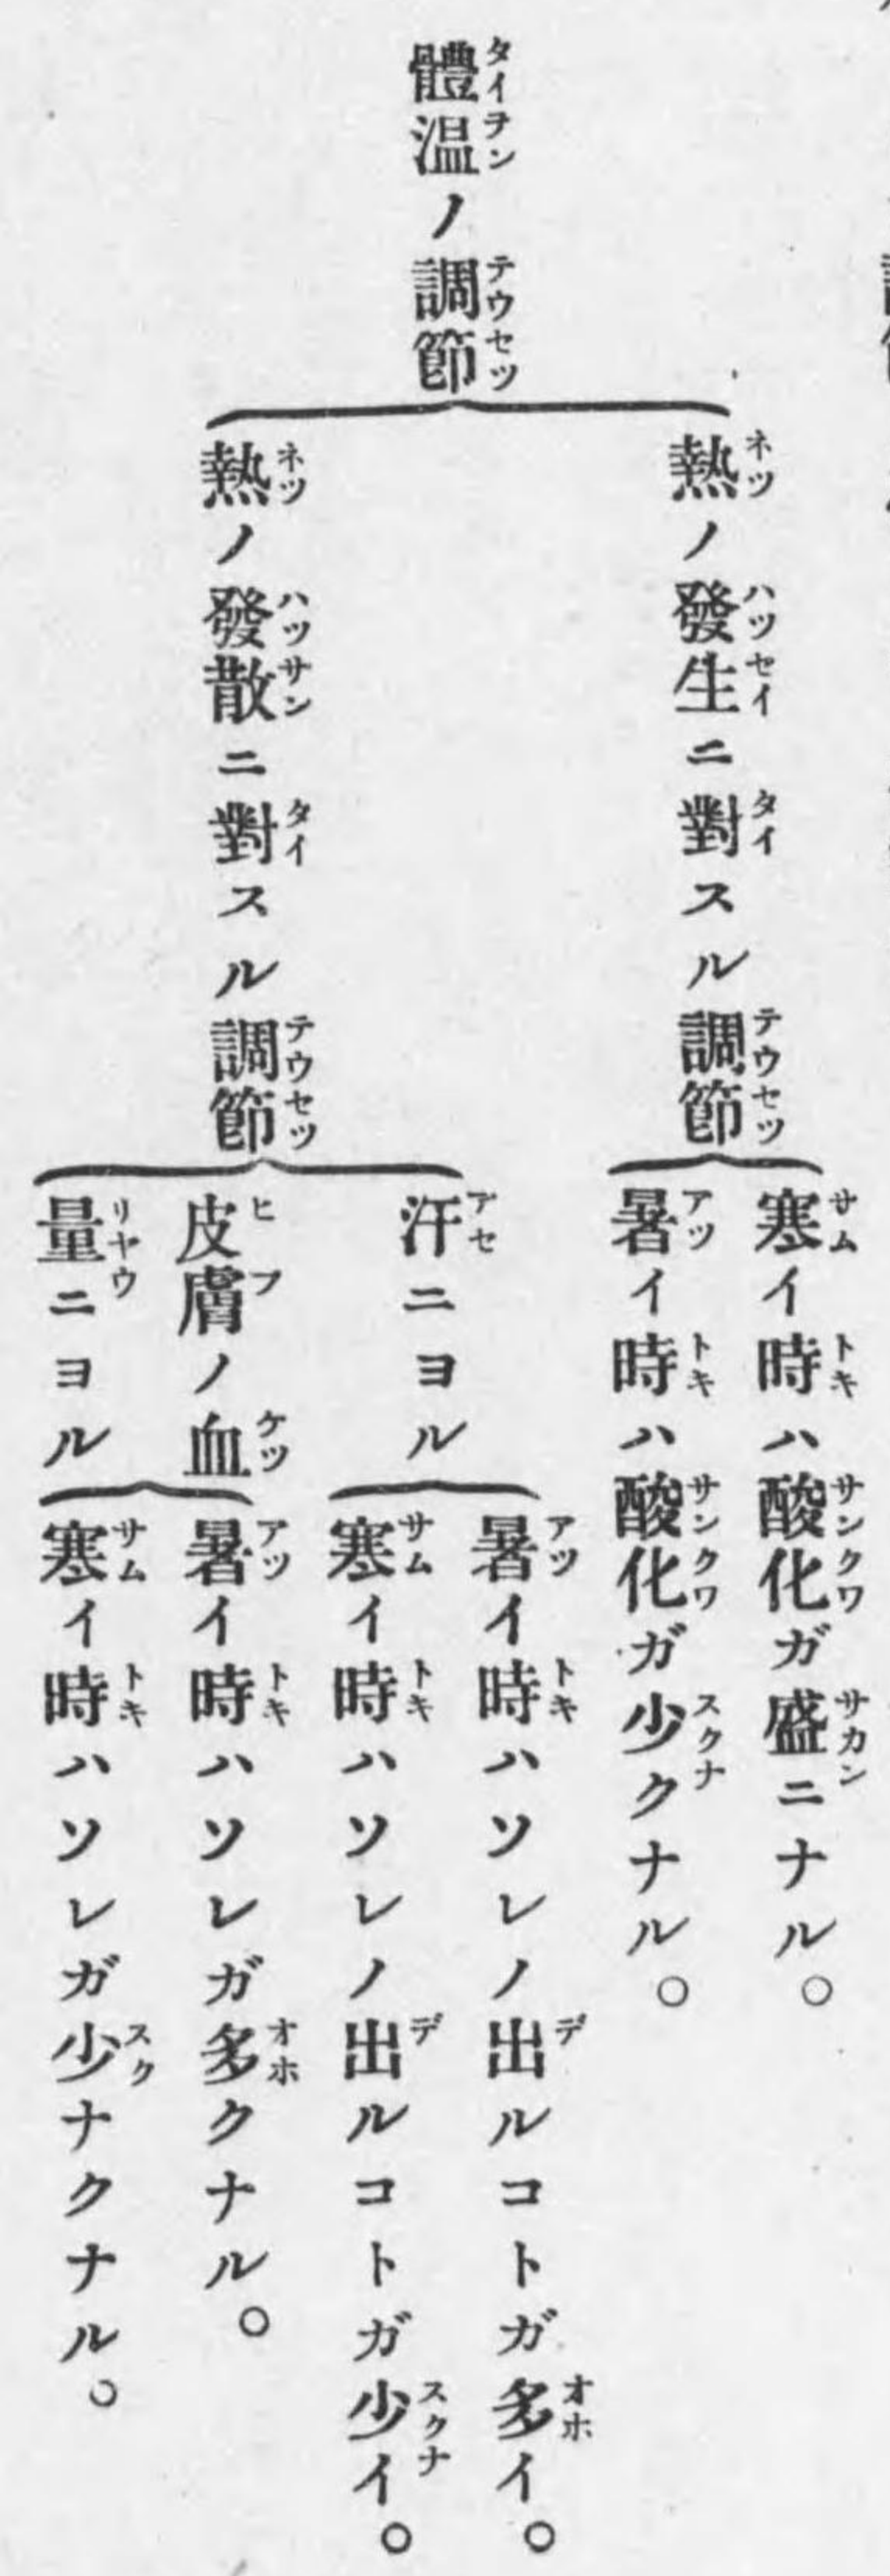 體温ノ調節
熱ノ發生ニ對スル調節
寒イ時ハ酸化ガ盛ニナル。
暑イ時ハ酸化ガ少クナル。
熱ノ發散ニ對スル調節
汗ニヨル
暑イ時ハソレノ出ルコトガ多イ。
寒イ時ハソレノ出ルコトガ少イ。
皮膚ノ血
量ニヨル
暑イ時ハソレガ多クナル。
寒イ時ハソレガ少ナクナル。